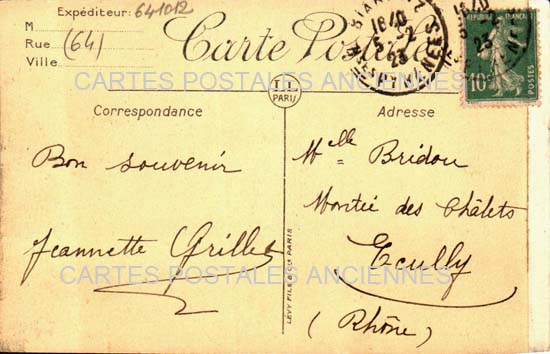 Expéditeur: 641012
M
Rue (64)
Ville
Carte Postale
RÉPUBLIQUE FRANÇAISE
10c
POSTES
CARTES POSTALES ANCIENNES
LL
PARIS
Correspondance
Adresse
Bon souvenir
Jeannette Grillet
Melle Bridou
Montée des Châlets
Ecully
(Rhône)
CARTES POSTALES ANCIENNES
LEVY FILS & Cie PARIS